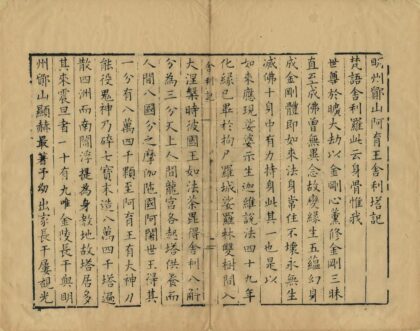 明州鄮山阿育王舍利塔記
梵語舍利羅此云身骨惟我
世尊於曠大劫以金剛心薰修金剛三昧
直至成佛曾無異念故變緣生五蘊幻身
成金剛體即如來法身常住不壞永無生
滅佛十身中有力持身此其一也是以
如來應現娑婆示生迦維說法四十九年
化緣已畢於拘尸羅城娑羅林雙樹間入
舍利記 一
大涅槃時彼國王如法荼毘得舍利八斛
分為三分天上人間龍宮各起塔供養而
人間八國分之摩伽陀國阿闍世王得其
一分有八萬四千顆至阿育王有大神力
能役鬼神乃碎七寶末造八萬四千塔遍
散四洲而南閻浮提為身教地故塔居多
其來震旦者一十有九唯金陵長干與明
州鄮山顯赫最著予幼出家長干屢覩光